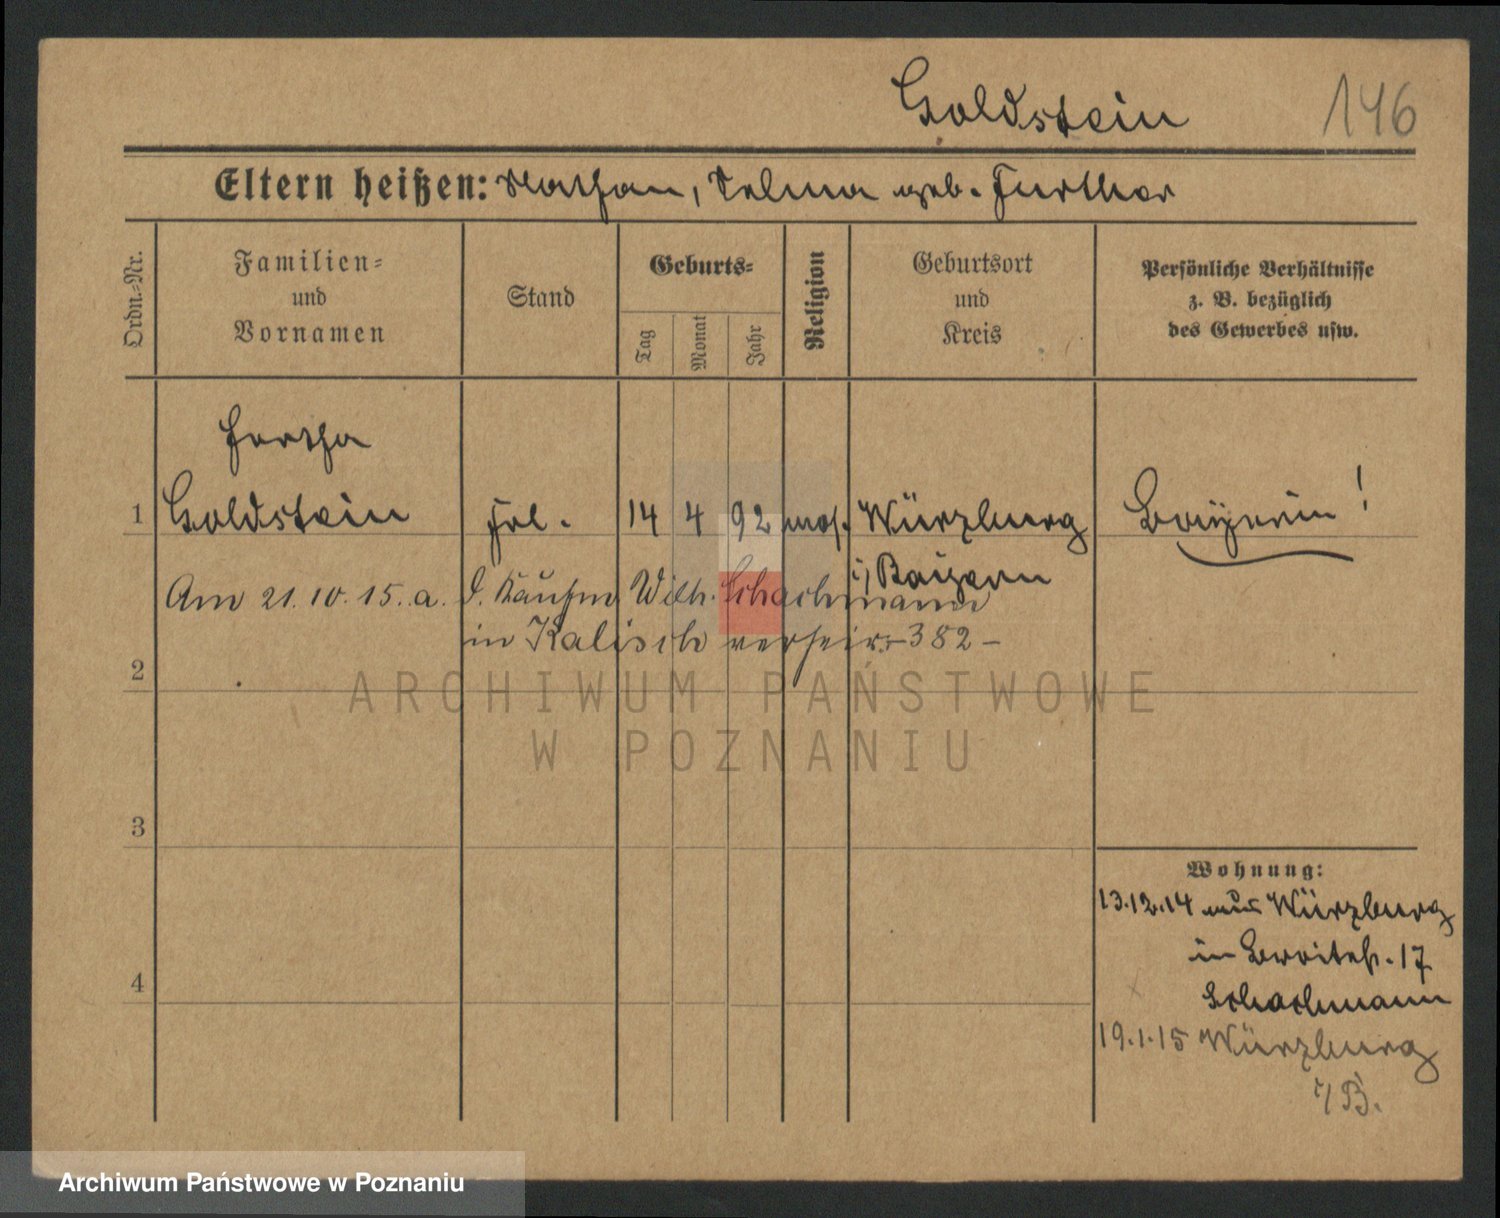 Goldstein 146
Eltern heißen: Nathan, Selma geb. Further
Ordn.=Nr.
Familien=
und
Vornamen
Stand
Geburts=
Tag
Monat
Jahr
Religion
Geburtsort
und
Kreis
Persönliche Verhältnisse
z. B. bezüglich
des Gewerbes usw.
Hertha
1 Goldstein Frl. 14 4 92 mos. Würzburg Bayerin!
i/ Baiern
Am 21.10.15. a. d. Kaufm Wilh. Schachmann
in Kalisch verheir. - 382 -
2
ARCHIWUM PAŃSTWOWE
W POZNANIU
3
Wohnung:
13.12.14 aus Würzburg
in Breitestr. 17
4
Schachmann
19.1.15 Würzburg
i/B.
Archiwum Państwowe w Poznaniu